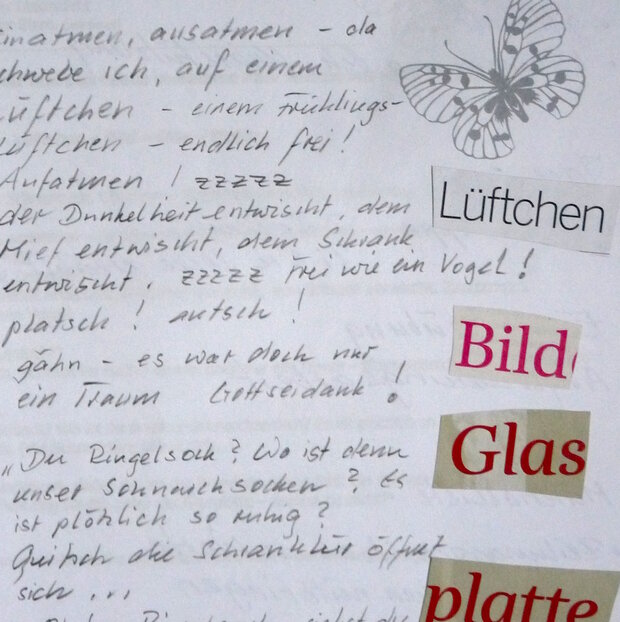 inatmen, ausatmen - da
chwebe ich, auf einem
Lüftchen - einem Frühlings-
Lüftchen - endlich frei!
Aufatmen ! zzzzz
der Dunkelheit entwischt, dem
Mief entwischt, dem Schrank
entwischt. zzzzz frei wie ein Vogel!
platsch! autsch!
gähn - es war doch nur
ein Traum Gottseidank!
"Du Ringelsock? Wo ist denn
unser Schnarchsocken? Es
ist plötzlich so ruhig?
Quitsch die Schranktür öffnet
sich ...
Lüftchen
Bild
Glas
platte